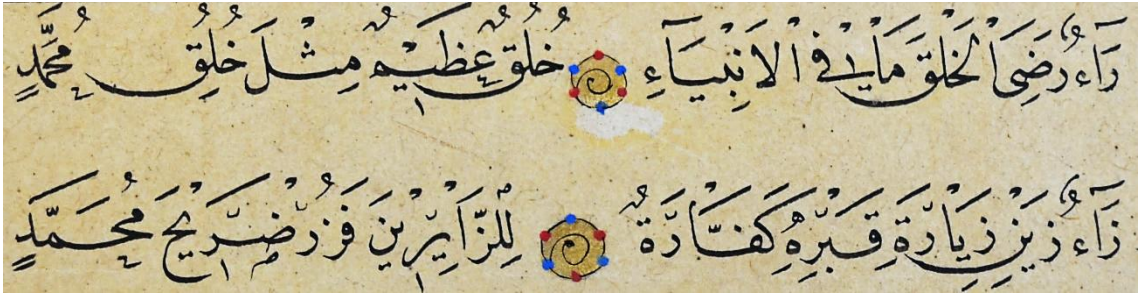 رَاءُ رَضِيَ الْخَلْقِ مَا فِي الْاَنْبِيَآءِ خُلُقٌ عَظِيمٌ مِثْلَ خُلِقِ مُحَمَّدٍ
زَاءُ زَيْنِ زِيَارَةِ قَبْرِهِ كَفَّارَةٌ لِلزَّايِرِينَ فَزُرْ ضَرِيْحَ مُحَمَّدٍ